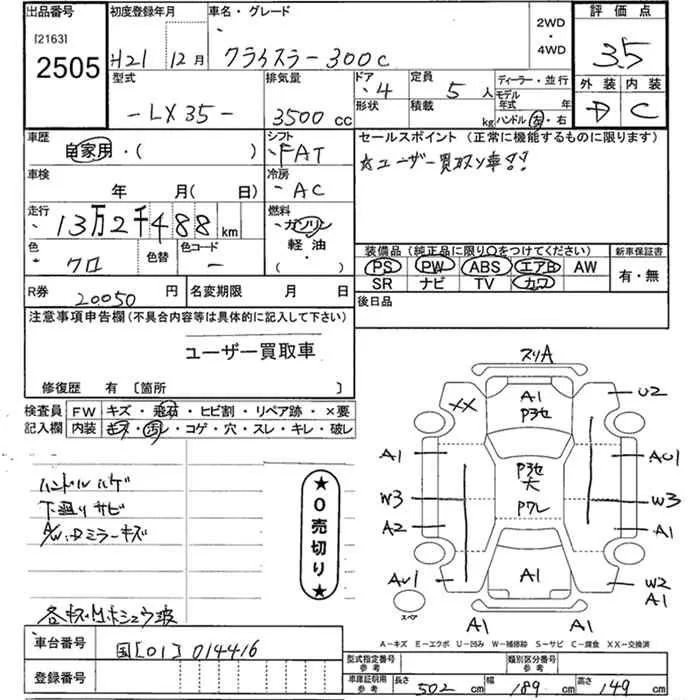 出品番号
[2163]
2505
初度登録年月
H21 12月
車名・グレード
クライスラー300C
2WD
・
4WD
評価点
3.5
外装 内装
D C
型式
-LX35-
排気量
3500cc
ドア
・4
形状
定員
5人
積載
kg
ディーラー・並行
モデル年式 年
ハンドル 左・右
車歴
自家用・( )
シフト
・FAT
車検
年 月(日)
冷房
・AC
走行
・13万2千488km
燃料
・ガソリン
軽油
( )
色
クロ
色替
色コード
-
R券
20050円
名変期限 月 日
セールスポイント(正常に機能するものに限ります)
☆ユーザー買取り車!!
装備品(純正品に限り○をつけてください)
PS PW ABS エアB AW
SR ナビ TV カワ
新車保証書
有・無
後日品
注意事項申告欄(不具合内容等は具体的に記入して下さい)
ユーザー買取車
修復歴 有〔箇所 〕
検査員
記入欄
FW キズ・飛石・ヒビ割・リペア跡・×要
内装 キズ・汚レ・コゲ・穴・スレ・キレ・破レ
ハンドルハゲ
下廻りサビ
A/W・Dミラーキズ
★0売切り★
スリA
XX
A1
P3セ
U2
A1
P3セ
大
AU1
W3
P7レ
W3
A2
A1
AU1
A1
W2
A1
スペア
A1
A1
A-キズ E-エクボ U-凹み W-補修跡 S-サビ C-腐食 XX-交換済
車台番号
国[01]014416
登録番号
型式指定番号
参考
類別区分番号
参考
車庫証明用
参考
長さ 502cm
幅 189cm
高さ 149cm